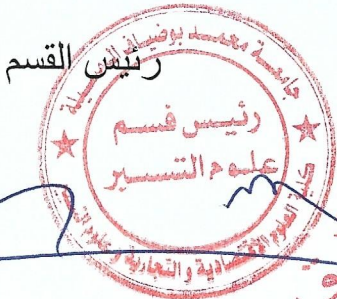 رئيس القسم
جامعة محمد بوضياف المسيلة
رئيس قسم
علوم التسيير
كلية العلوم الاقتصادية و التجارية و علوم